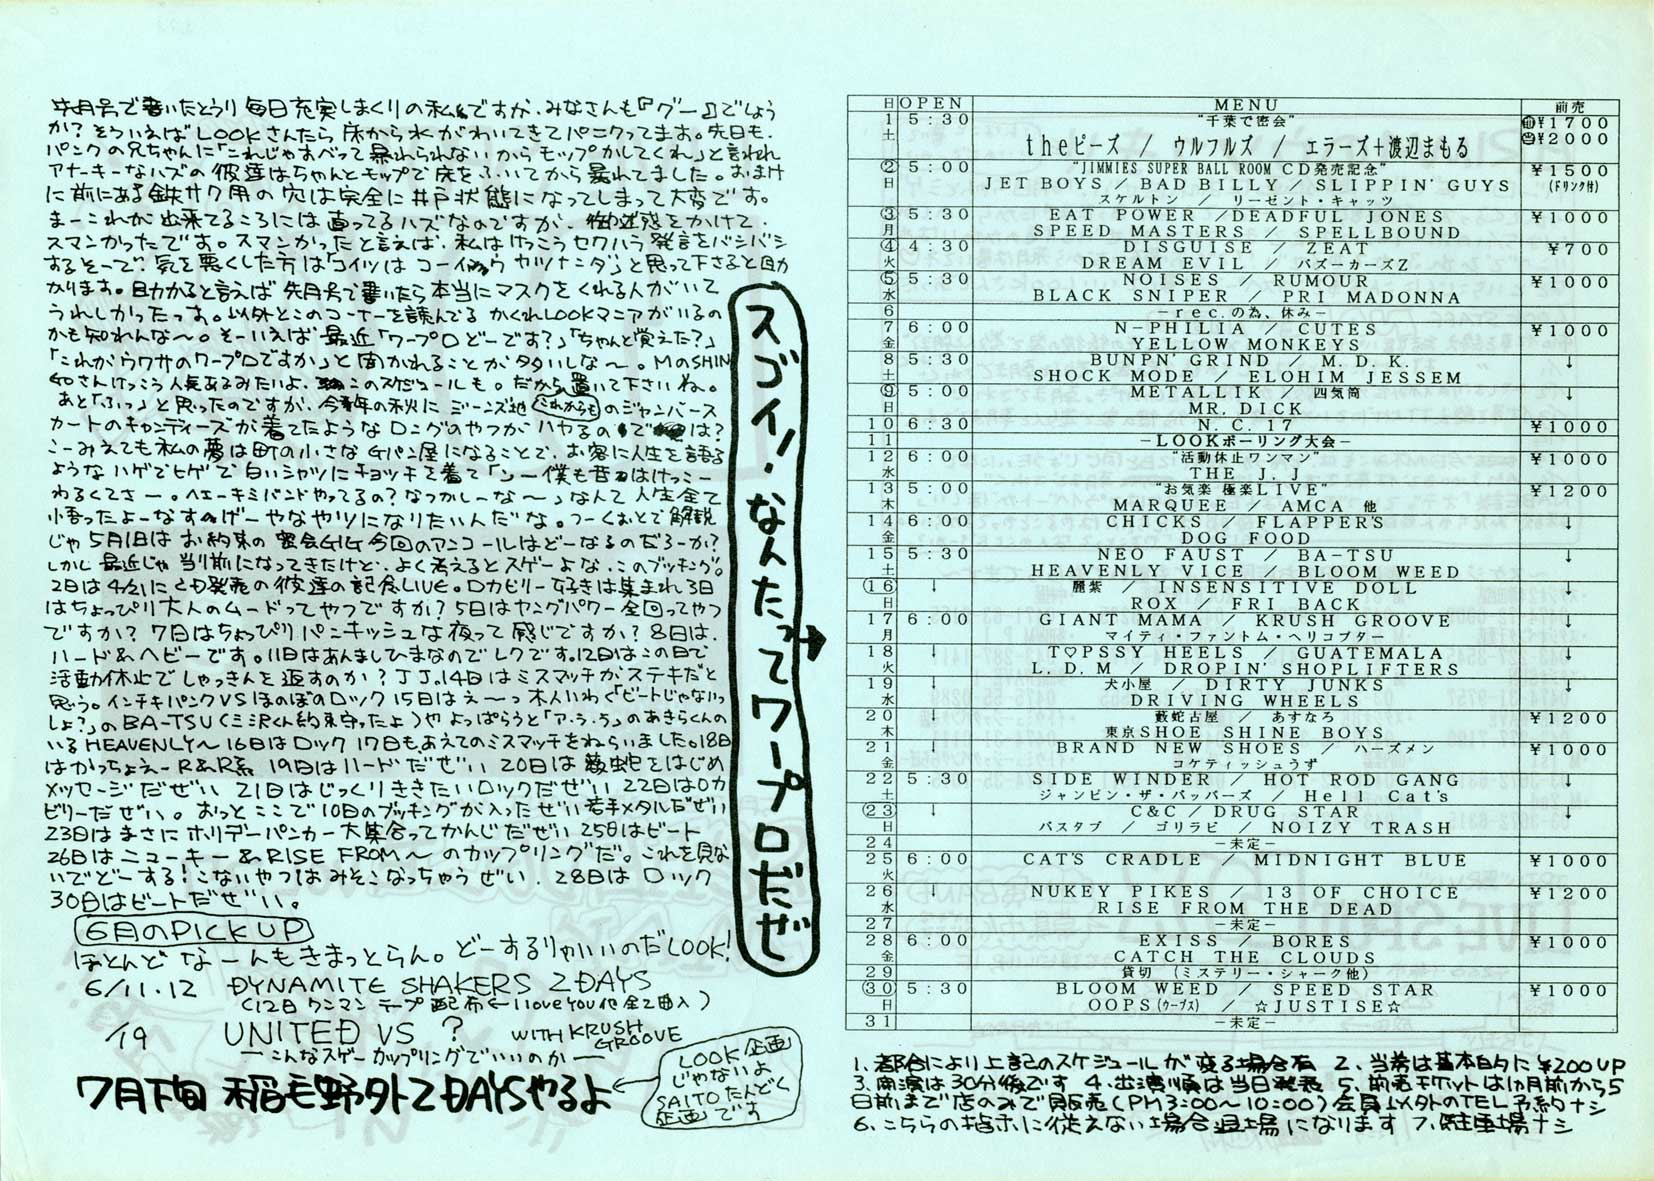 先月号で書いたとうり毎日充実しまくりの私ですが、みなさんも『グー』でしょう
か？そういえばLOOKさんたら床から水がわいてきてパニクってます。先日も、
パンクの兄ちゃんに「これじゃすべって暴れられないからモップかしてくれ」と言われ
アナーキーなハズの彼達はちゃんとモップで床をふいてから暴れてました。おまけ
に前にある鉄サク用の穴は完全に井戸状態になってしまって大変です。
まーこれが出来てるころには直ってるハズなのですが、御迷惑をかけて、
スマンかったです。スマンかったと言えば、私はけっこうセクハラ発言をバシバシ
するそーで、気を悪くした方は「コイツはコーイウヤツナンダ」と思って下さると助
かります。助かると言えば先月号で書いたら本当にマスクをくれる人がいて
うれしかったっす。以外とこのコーナーを読んでるかくれLOOKマニアがいるの
かも知れんな〜。そーいえば最近「ワープロどーです？」「ちゃんと覚えた？」
「これがウワサのワープロですか」と聞かれることがタタいしな〜。MのSHIN
GOさんけっこう人気あるみたいよ、このスケジュールも。だから置いて下さいね。
あと「ふっ」と思ったのですが、今年の秋にジーンズ地（これからも）のジャンバース
カートのキャンディーズが着てたようなロングのやつがハヤるのでは？
こーみえても私の夢は町の小さなGパン屋になることで、お客に人生を語る
ようなハゲでヒゲで白いシャツにチョッキを着て「ンー僕も昔はけっこー
わるくてさー。ヘエーキミバンドやってるの？なつかしーな〜」なんて人生全て
悟ったよーなすげーやなヤツになりたいんだな。つーことで解説
じゃ5月1日はお約束の密会GIG今回のアンコールはどーなるのだろーか？
しかし最近じゃ当り前になってきたけど、よく考えるとスゲーよな、このブッキング。
2日は4/21にCD発売の彼達の記念LIVE。ロカビリー好きは集まれ3日
はちょっぴり大人のムードってやつですか？5日はヤングパワー全回ってやつ
ですか？7日はちょっぴりパンキッシュな夜って感じですか？8日は、
ハード&ヘビーです。11日はあんましひまなのでレクです。12日はこの日で
活動休止でしゃっきんを返すのか？J.J.14日はミスマッチがステキだと
思う。インチキパンクVSほのぼのロック 15日はえ〜っ本人いわく「ビートじゃないっ
しょ？」のBA-TSU（ミ沢くん約束守ったよ）やよっぱらうと「ア.う.う」のあきらくんの
いるHEAVENLY〜16日はロック 17日もあえてのミスマッチをねらいました。18日
はかっちょえーR&R系 19日はハードだぜい 20日は藪蛇をはじめ
メッセージだぜい 21日はじっくりききたいロックだぜい 22日はロカ
ビリーだぜい。おっとここで10日のブッキングが入ったぜい若手メタルだぜい
23日はまさにホリデーパンカー大集合ってかんじだぜい 25日はビート
26日はニューキー&RISE FROM〜のカップリングだ。これを見な
いでどーする！こないやつはみそこなっちゃうぜい、28日はロック
30日はビートだぜい。
6月のPICK UP
ほとんどなーんもきまっとらん。どーするりゃいいのだLOOK！
6/11.12 DYNAMITE SHAKERS 2DAYS
（12日ワンマン テープ配布←I love you他全2曲入）
/19 UNITED VS ? WITH KRUSH GROOVE
ーこんなスゲーカップリングでいいのかー
7月下旬 稲毛野外で2DAYSやるよ
LOOK企画
じゃないよ
SAITOたんどく
企画です
スゴイ！なんたってワープロだぜ
日 OPEN MENU 前売
1 土 5:30 “千葉で密会” 前¥1700
theピーズ / ウルフルズ / エラーズ+渡辺まもる 当¥2000
2 日 5:00 “JIMMIES SUPER BALL ROOM CD発売記念” ¥1500
JET BOYS / BAD BILLY / SLIPPIN' GUYS (ドリンク付)
スケルトン / リーゼント・キャッツ
3 月 5:30 EAT POWER / DEADFUL JONES ¥1000
SPEED MASTERS / SPELLBOUND
4 火 4:30 DISGUISE / ZEAT ¥700
DREAM EVIL / バズーカーズZ
5 水 5:30 NOISES / RUMOUR ¥1000
BLACK SNIPER / PRI MADONNA
6 －rec.の為、休み－
7 金 6:00 N-PHILIA / CUTES ¥1000
YELLOW MONKEYS
8 土 5:30 BUNPN' GRIND / M.D.K. ↓
SHOCK MODE / ELOHIM JESSEM
9 日 5:00 METALLIK / 四気筒 ↓
MR. DICK
10 6:30 N.C.17 ¥1000
11 －LOOKボーリング大会－
12 水 6:00 “活動休止ワンマン” ¥1000
THE J.J
13 木 5:00 “お気楽 極楽LIVE” ¥1200
MARQUEE / AMCA 他
14 金 6:00 CHICKS / FLAPPER'S
DOG FOOD
15 土 5:30 NEO FAUST / BA-TSU ↓
HEAVENLY VICE / BLOOM WEED
16 日 ↓ 麗紫 / INSENSITIVE DOLL ↓
ROX / FRI BACK
17 月 6:00 GIANT MAMA / KRUSH GROOVE ↓
マイティ・ファントム・ヘリコプター
18 火 ↓ T♡PSSY HEELS / GUATEMALA ↓
L.D.M / DROPIN' SHOPLIFTERS
19 水 ↓ 犬小屋 / DIRTY JUNKS ↓
DRIVING WHEELS
20 木 ↓ 藪蛇古屋 / あすなろ ¥1200
東京SHOE SHINE BOYS
21 金 ↓ BRAND NEW SHOES / ハーズメン ¥1000
コケティッシュうず
22 土 5:30 SIDE WINDER / HOT ROD GANG ↓
ジャンピン・ザ・パッパーズ / Hell Cat's
23 日 ↓ C&C / DRUG STAR ↓
バスタブ / ゴリラビ / NOIZY TRASH
24 －未定－
25 火 6:00 CAT'S CRADLE / MIDNIGHT BLUE ¥1000
26 水 ↓ NUKEY PIKES / 13 OF CHOICE ¥1200
RISE FROM THE DEAD
27 －未定－
28 金 6:00 EXISS / BORES ¥1000
CATCH THE CLOUDS
29 貸切 (ミステリー・シャーク他)
30 日 5:30 BLOOM WEED / SPEED STAR ¥1000
OOPS(ウープス) / ☆JUSTISE☆
31 －未定－
1. 都合により上記のスケジュールが変る場合有 2. 当券は基本的に¥200UP
3. 開演は30分後です 4. 出演順は当日発表 5. 前売チケットは1ヵ月前から5
日前まで店のみで販売(PM3:00〜10:00)会員以外のTEL予約ナシ
6. こちらの指示に従えない場合退場になります 7. 駐車場ナシ